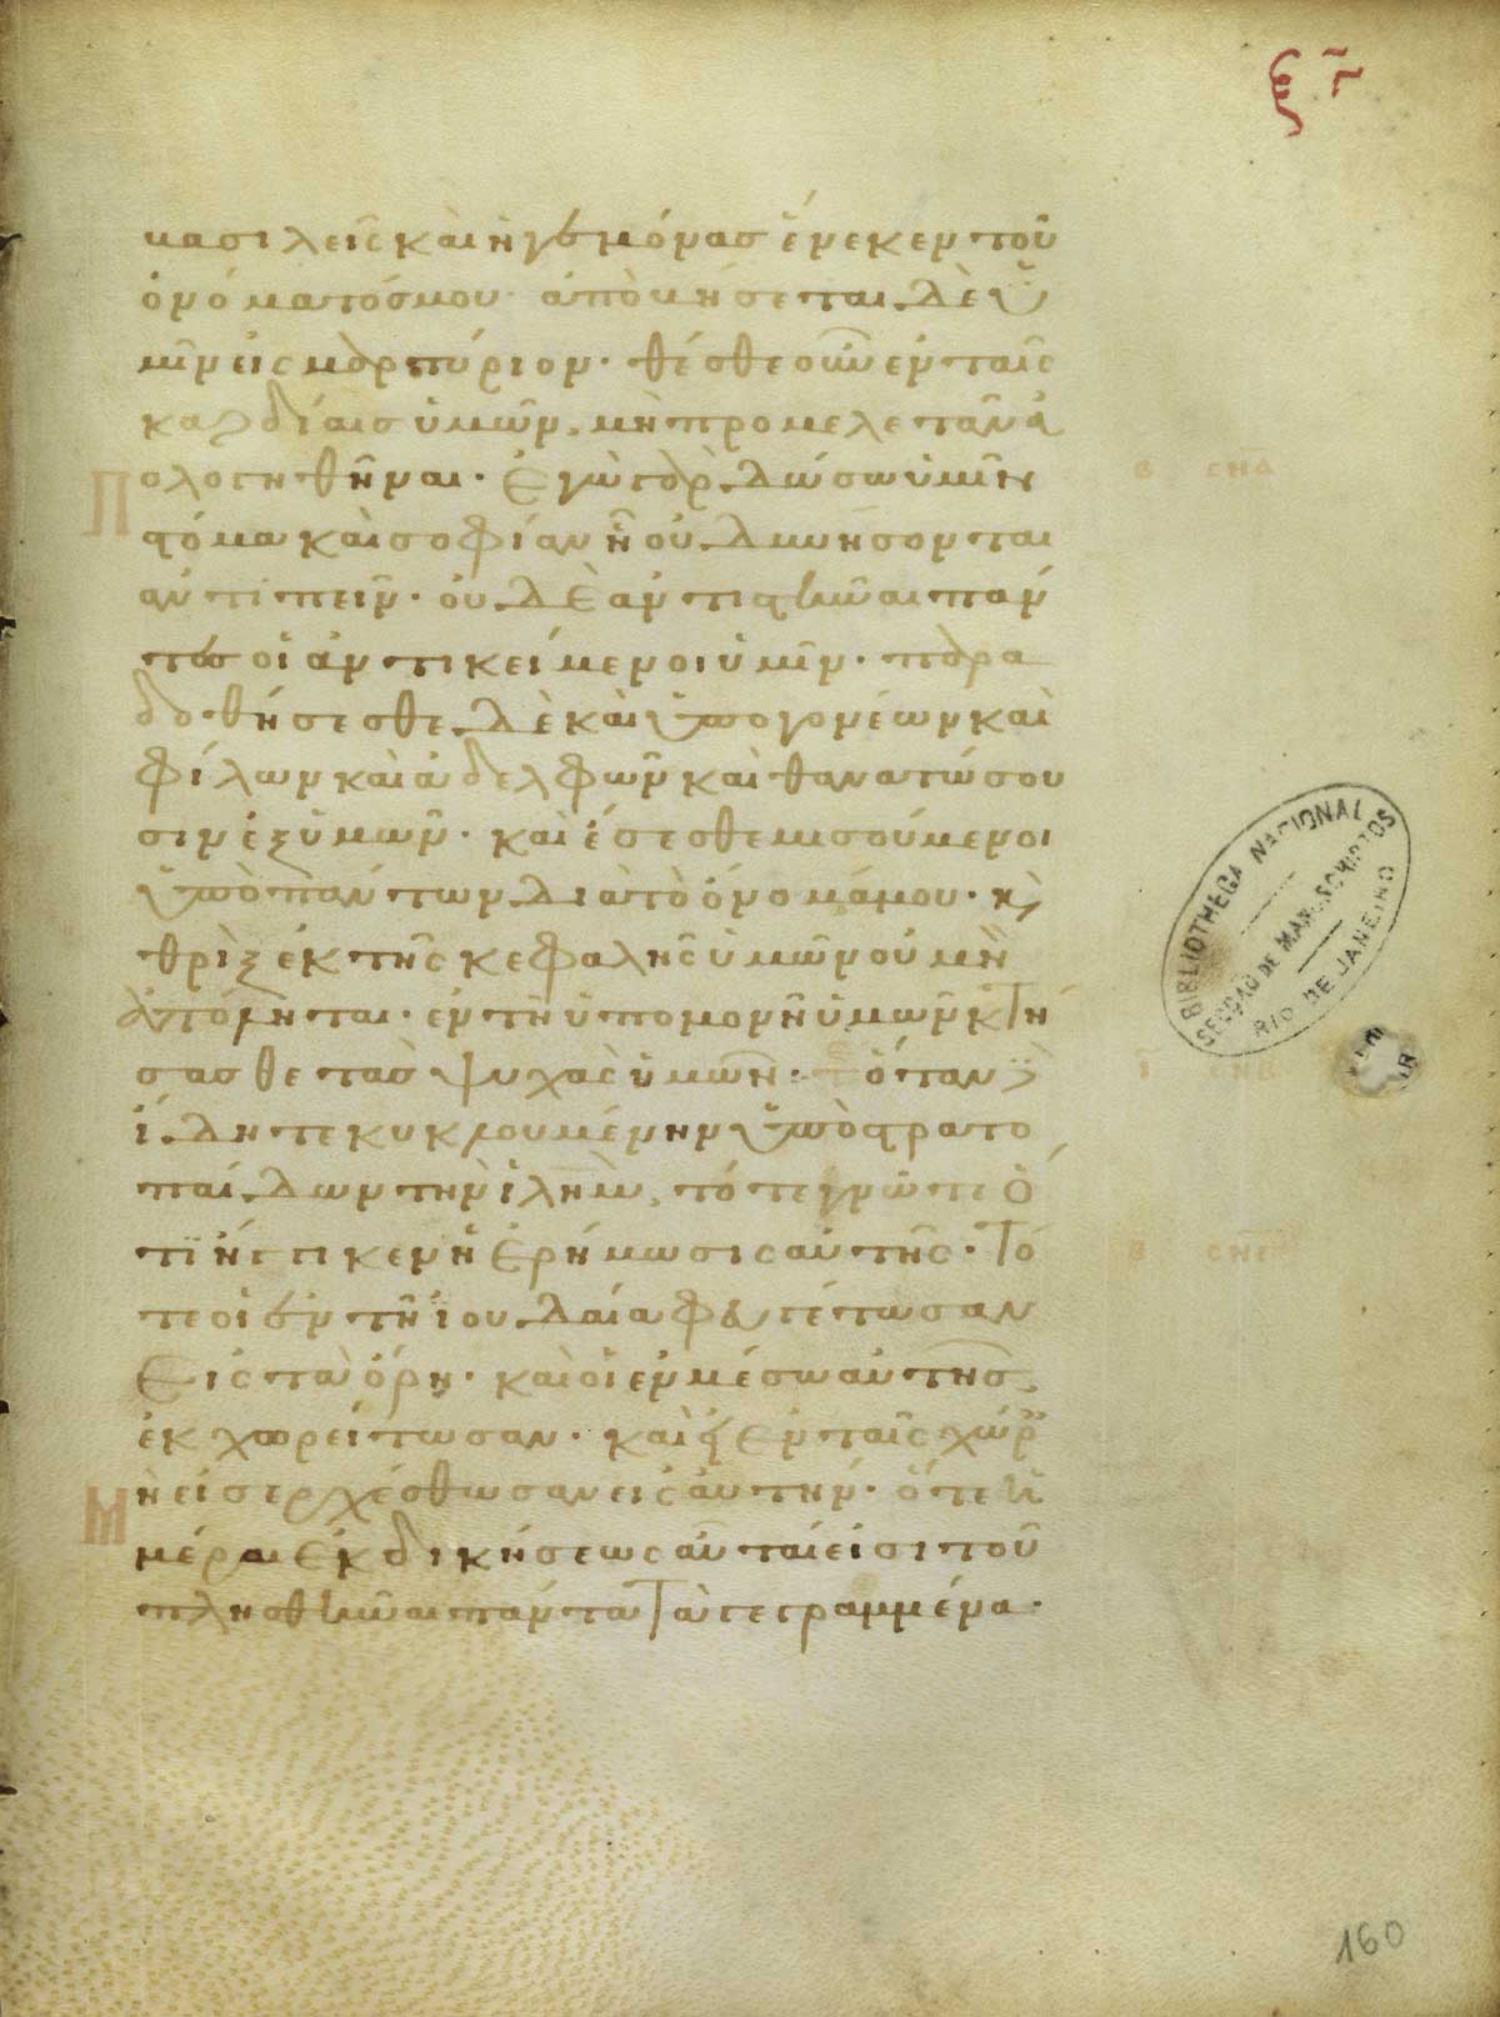 ξγ
βασιλεῖς καὶ ἡγεμόνας ἕνεκεν τοῦ
ὀνόματός μου· ἀποβήσεται δὲ ὑ
μῖν εἰς μαρτύριον· θέσθε οὖν ἐν ταῖς
καρδίαις ὑμῶν, μὴ προμελετᾶν ἀ
πολογηθῆναι· Ἐγὼ γὰρ δώσω ὑμῖν
στόμα καὶ σοφίαν ἧ οὐ δυνήσονται
ἀντιπεῖν· οὐδὲ ἀντιστῆναι πάν
τες οἱ ἀντικείμενοι ὑμῖν· παρα
δοθήσεσθε δὲ καὶ ὑπὸ γονέων καὶ
φίλων καὶ ἀδελφῶν καὶ θανατώσου
σιν ἐξ ὑμῶν· καὶ ἔσεσθε μισούμενοι
ὑπὸ πάντων διὰ τὸ ὄνομά μου· κὶ
θρὶξ ἐκ τῆς κεφαλῆς ὑμῶν οὐ μὴ
ἀπόληται· ἐν τῇ ὑπομονῇ ὑμῶν κτή
σασθε τὰς ψυχὰς ὑμῶν· ὅταν δὲ
ἴδητε κυκλουμένην ὑπὸ στρατο
παίδων τὴν ἰλὴμ, τότε γνῶτε ὅ
τι ἤγγικεν ἡ ἐρήμωσις αὐτῆς· Τό
τε οἱ ἐν τῇ ἰουδαίᾳ φευγέτωσαν
Εἰς τὰ ὄρη· καὶ οἱ ἐν μέσω αὐτῆς
ἐκχωρείτωσαν· καὶ οἱ ἐν ταῖς χώραις
μὴ εἰσερχέσθωσαν εἰς αὐτήν· ὅτι ἡ
μέραι ἐκδικήσεως αὗταί εἰσι τοῦ
πλησθῆναι πάντα Τὰ γεγραμμένα·
Β ϹΝΔ
Β ϹΝϚ
BIBLIOTHECA NACIONAL
SECÇÃO DE MANUSCRIPTOS
RIO DE JANEIRO
160